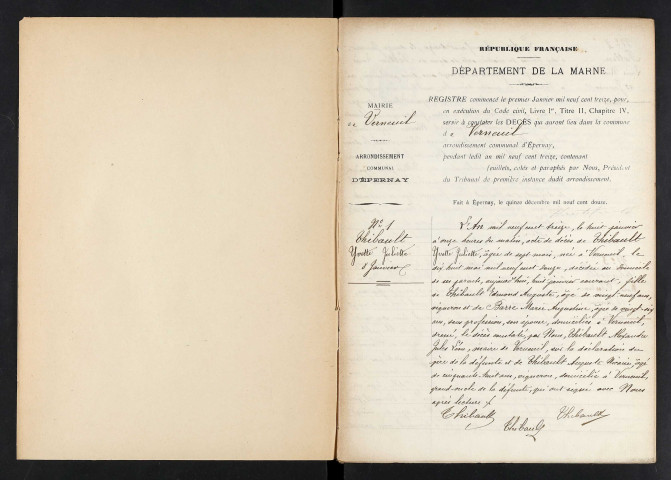 RÉPUBLIQUE FRANÇAISE
DÉPARTEMENT DE LA MARNE
MAIRIE
de Verneuil
ARRONDISSEMENT
COMMUNAL
D'ÉPERNAY
REGISTRE commencé le premier Janvier mil neuf cent treize, pour,
en exécution du Code civil, Livre Ier, Titre II, Chapitre IV,
servir à constater les DÉCÈS qui auront lieu dans la commune
d e Verneuil
arrondissement communal d'Épernay,
pendant ledit an mil neuf cent treize, contenant
feuillets, cotés et paraphés par Nous, Président
du Tribunal de première instance dudit arrondissement.
Fait à Épernay, le quinze décembre mil neuf cent douze.
No 1
Thibault
Yvette Juliette
8 Janvier
L'An mil neuf cent treize, le huit janvier
à onze heures du matin, acte de décès de Thibault
Yvette Juliette, âgée de sept mois, née à Verneuil, le
dix huit mai mil neuf cent douze, décédée au domicile
de ses parents, aujourd'hui, huit janvier courant, fille
de Thibault Edmond Auguste, âgé de vingt neuf ans,
vigneron et de Barré Marie Angéline, âgée de vingt-six
ans, sans profession, son épouse, domiciliés à Verneuil,
dressé, le décès constaté, par Nous, Thibault Alexandre
Jules Léon, maire de Verneuil, sur la déclaration du
père de la défunte et de Thibault Auguste âgé
de cinquante-huit ans, vigneron, domicilié à Verneuil,
grand-oncle de la défunte, qui ont signé avec Nous
après lecture
Thibault Thibault
Thibault